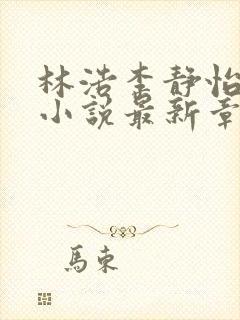 林浩李静怡
小说最新章
馬東